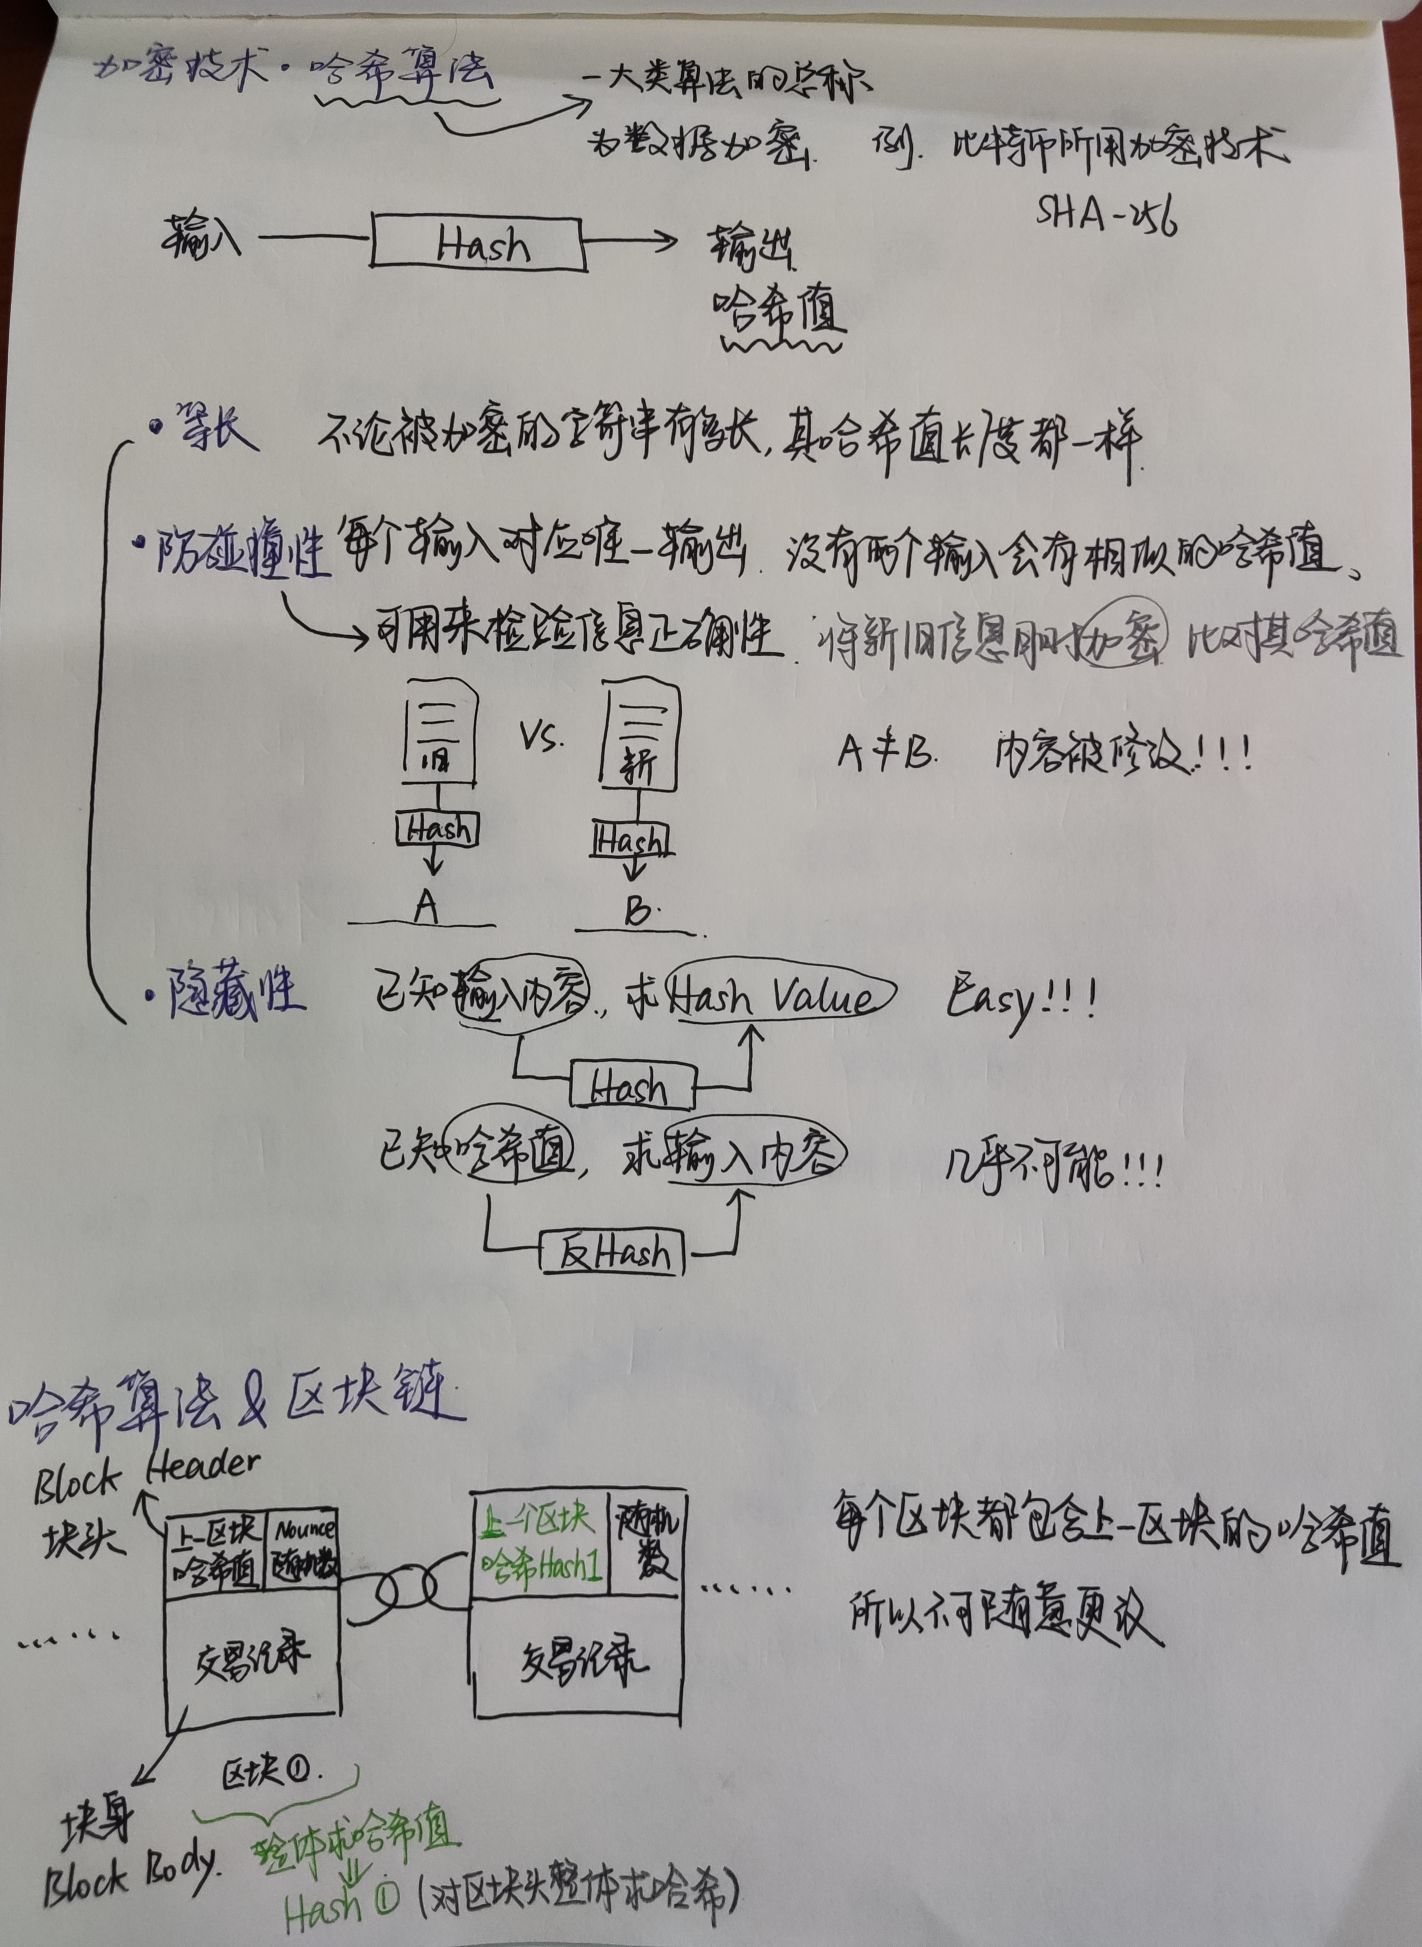 加密技术·哈希算法
一大类算法的总称
为数据加密. 例. 比特币所用加密技术
SHA-256
输入 Hash 输出
哈希值
·等长 不论被加密的字符串有多长,其哈希值长度都一样.
·防碰撞性 每个输入对应唯一输出. 没有两个输入会有相似的哈希值、
可用来检验信息正确性. 将新旧信息同时加密 比对其哈希值
旧 VS. 新 A≠B. 内容被修改!!!
Hash Hash
A B.
·隐藏性 已知输入内容, 求Hash Value Easy!!!
Hash
已知哈希值, 求输入内容 几乎不可能!!!
反Hash
哈希算法&区块链.
Block Header
块头
上一区块
哈希值
Nounce
随机数
上一个区块
哈希Hash1
随机
数
每个区块都包含上一区块的哈希值
所以不可随意更改
...... ......
交易记录 交易记录
区块①.
块身
Block Body.
整体求哈希值
Hash① (对区块头整体求哈希)